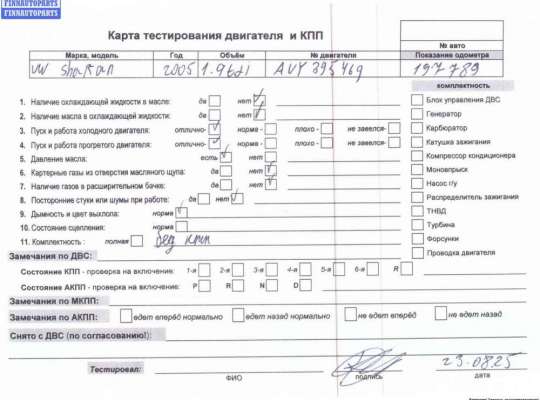 FINNAUTOPARTS
FINNAUTOPARTS
Карта тестирования двигателя и КПП
№ авто
Марка, модель Год Объём № двигателя Показание одометра
VW Sharan 2005 1.9tdi AUY 395469 197789
комплектность
1. Наличие охлаждающей жидкости в масле: да нет Блок управления ДВС
2. Наличие масла в охлаждающей жидкости: да нет Генератор
3. Пуск и работа холодного двигателя: отлично- норма - плохо - не завелся- Карбюратор
4. Пуск и работа прогретого двигателя: отлично- норма - плохо - не завелся- Катушка зажигания
5. Давление масла: есть нет Компрессор кондиционера
6. Картерные газы из отверстия масляного щупа: да нет Моновпрыск
7. Наличие газов в расширительном бачке: да нет Насос г/у
8. Посторонние стуки или шумы при работе: да нет Распределитель зажигания
9. Дымность и цвет выхлопа: норма ТНВД
10. Состояние сцепления: норма Турбина
11. Комплектность : полная без КПП Форсунки
Замечания по ДВС: Проводка двигателя
Состояние КПП - проверка на включение: 1-я 2-я 3-я 4-я 5-я 6-я R
Состояние АКПП - проверка на включение: P R N D
Замечания по МКПП:
Замечания по АКПП: едет вперёд нормально едет назад нормально не едет вперёд не едет назад
Снято с ДВС (по согласованию!):
Тестировал: 23.08.25
ФИО подпись дата